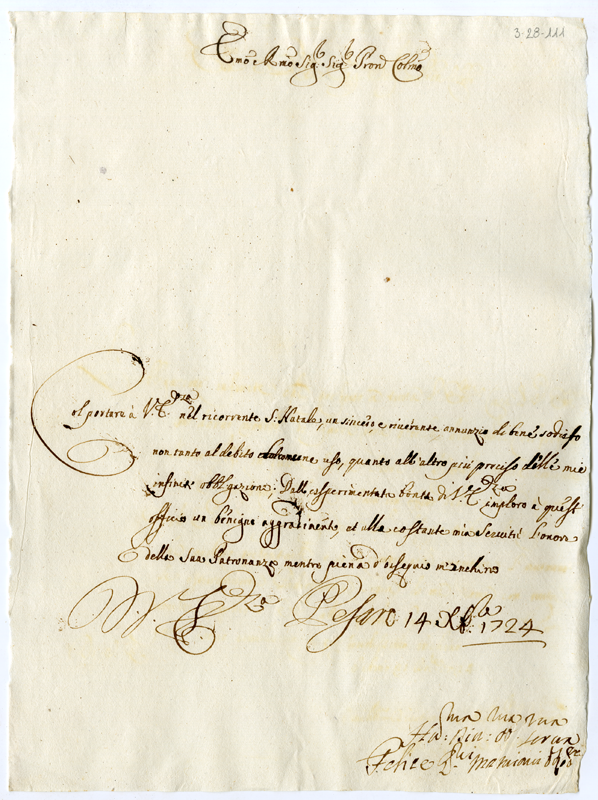 3-28-111
Emo e Rmo Sig.r Sig.r Pron Colmo
Col portare à V. Eza nel ricorrente S: Natale, un sincero e riverente annunzio di bene sodisfo
non tanto al debito del comune uso, quanto all'altro più preciso delle mie
infinite obligazioni; Dall'esperimentata bontà di V. Eza imploro à quest'
officio un benigno aggradimento, et alla costante mia Servitù l'onore
della sua Patronanza mentre piena d'ossequio m'inchino
D. V. Eza Pesaro 14 Xbre 1724
Felice